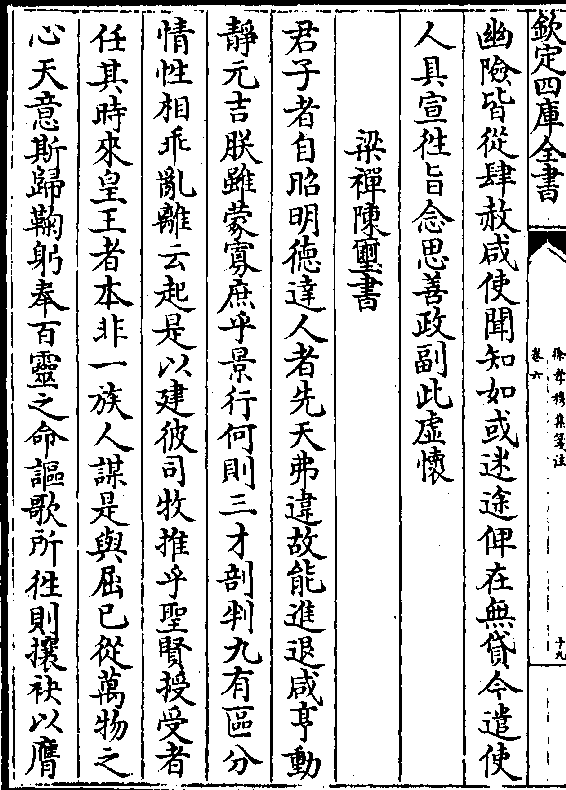 欽定四庫全書
徐孝穆集箋注
卷六
十九
幽險皆從肆赦咸使聞知如或迷途俾在無貸今遣使
人具宣徃旨念思善政副此虛懷
梁禪陳璽書
君子者自昭明徳達人者先天弗違故能進退咸亨動
靜元吉朕雖蒙寡庶乎景行何則三才剖判九有區分
情性相乖亂離云起是以建彼司牧推乎聖賢授受者
任其時來皇王者本非一族人謀是與屈已從萬物之
心天意斯歸鞠躬奉百靈之命謳歌所徃則攘袂以膺